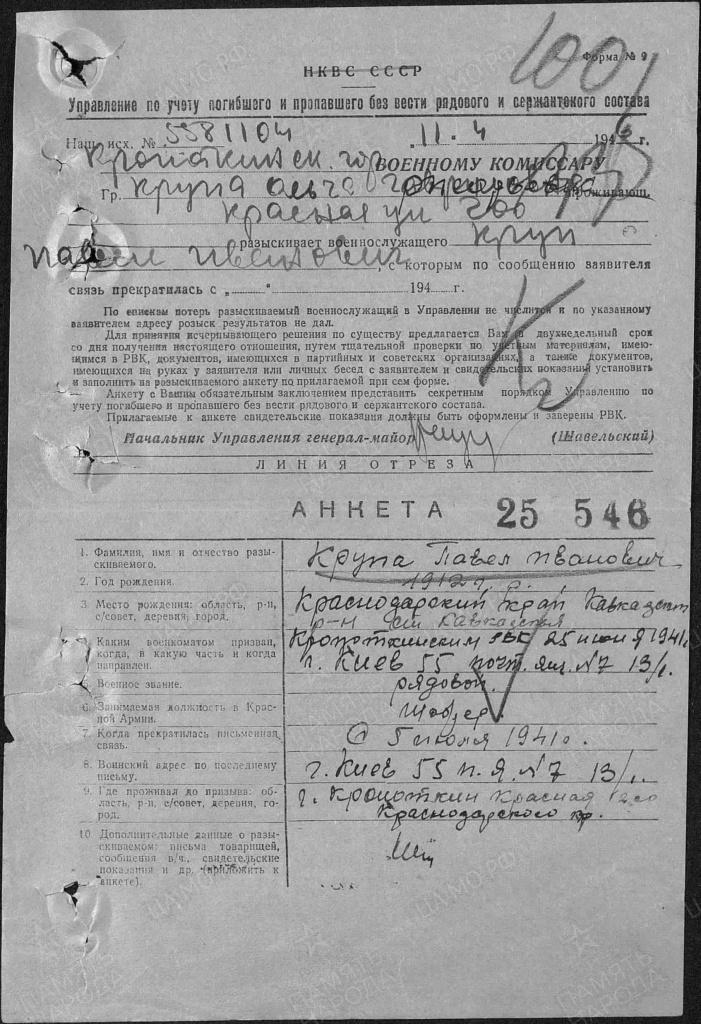 100
Форма № 9
НКВС СССР
Управление по учету погибшего и пропавшего без вести рядового и сержантского состава
Наш исх. № 5581104 „11.4 1946 г.
Кропоткинск. гор ВОЕННОМУ КОМИССАРУ
Гр. Крупа Ольга проживающ.
Красная ул 200
разыскивает военнослужащего Круп
Павел Иванович, с которым по сообщению заявителя
связь прекратилась с „ " 194 г.
По спискам потерь разыскиваемый военнослужащий в Управлении не числится и по указанному
заявителем адресу розыск результатов не дал.
Для принятия исчерпывающего решения по существу предлагается Вам в двухнедельный срок
со дня получения настоящего отношения, путем тщательной проверки по учетным материалам, имею-
щимся в РВК, документов, имеющихся в партийных и советских организациях, а также документов,
имеющихся на руках у заявителя или личных бесед с заявителем и свидетельских показаний установить
и заполнить на разыскиваемого анкету по прилагаемой при сем форме.
Анкету с Вашим обязательным заключением представить секретным порядком Управлению по
учету погибшего и пропавшего без вести рядового и сержантского состава.
Прилагаемые к анкете свидетельские показания должны быть оформлены и заверены РВК.
Начальник Управления генерал-майор (Шавельский)
ЛИНИЯ ОТРЕЗА
АНКЕТА 25 546
1. Фамилия, имя и отчество разы-
скиваемого.
Крупа Павел Иванович
2. Год рождения.
1912 г. р.
3. Место рождения: область, р-н,
с/совет, деревня, город.
Краснодарский край Кавказский
р-н ст Кавказская
4. Каким военкоматом призван,
когда, в какую часть и когда
направлен.
Кропоткинским РВК 25 июня 1941г
г. Киев 55 почт. ящ. №7 13/1.
5. Военное звание.
рядовой.
6. Занимаемая должность в Крас-
ной Армии.
Шофер.
7. Когда прекратилась письменная
связь.
С 5 июля 1941 г.
8. Воинский адрес по последнему
письму.
г. Киев 55 п. я. №7 13/1.
9. Где проживал до призыва: об-
ласть, р-н, с/совет, деревня, го-
род.
г. Кропоткин Красная 200
Краснодарского кр.
10. Дополнительные данные о разы-
скиваемом: письма товарищей,
сообщения в/ч., свидетельские
показания и др. (приложить к
анкете).